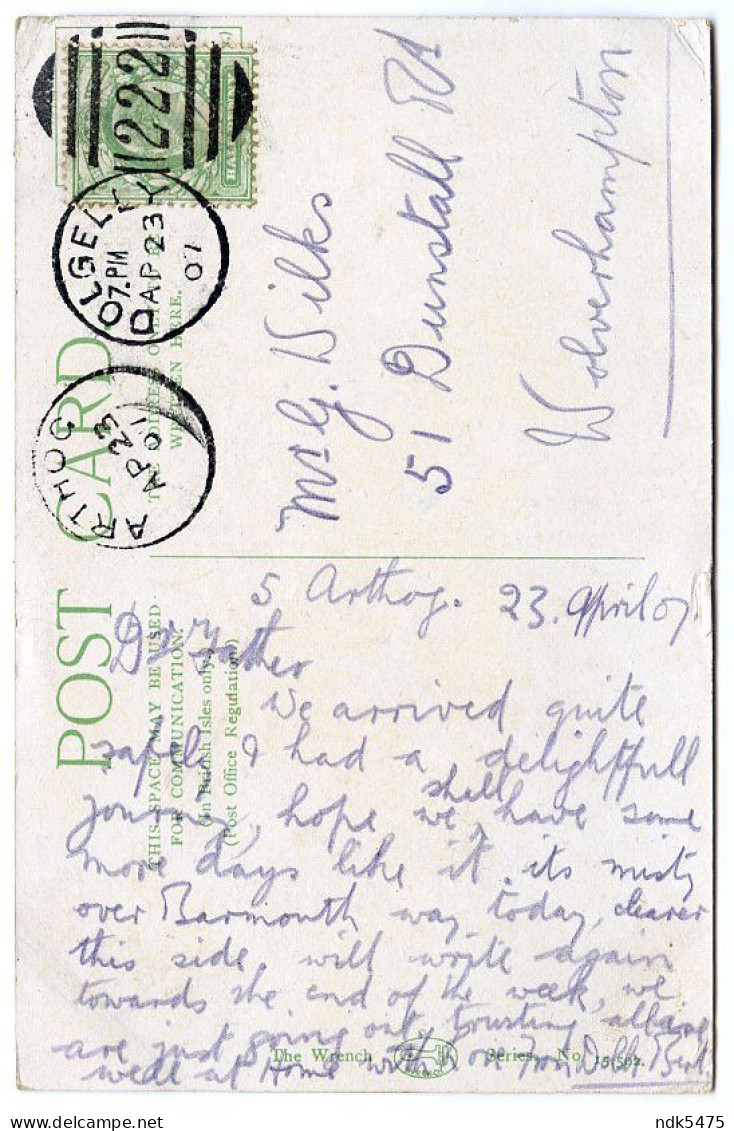 HALF
222
DOLGELLY
7.PM
AP 23
07
ARTHOG
AP 23
07
POST CARD
THIS SPACE MAY BE USED
FOR COMMUNICATION.
(In British Isles only.)
(Post Office Regulation.)
THE ADDRESS ONLY TO BE
WRITTEN HERE.
Mr G. Wilks
51 Dunstall Rd
Wolverhampton
5 Arthog. 23. April 07.
Dr Father
We arrived quite
safely & had a delightfull
journey, hope we shall have some
more days like it, its misty
over Barmouth way today, clearer
this side, will write again
towards the end of the week, we
are just going out, trusting all are
well at Home with love from D &
The Wrench Series, No. 15592.
ndk5475